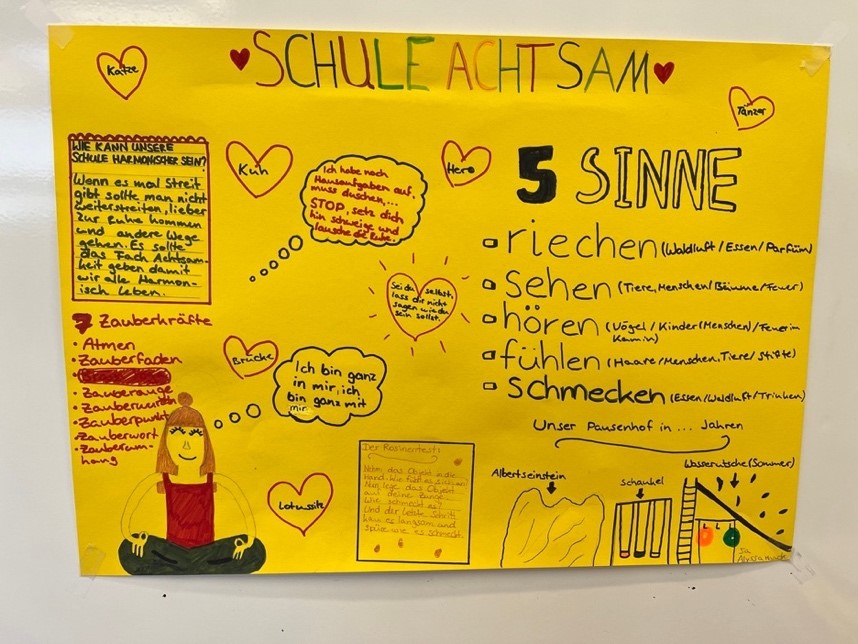 SCHULE ACHTSAM
Katze
Tänzer
WIE KANN UNSERE
SCHULE HARMONISCHER SEIN?
Wenn es mal Streit
gibt sollte man nicht
weiterstreiten, lieber
zur Ruhe kommen
und andere Wege
gehen. Es sollte
das Fach Achtsam-
keit geben damit
wir alle Harmon-
isch leben.
Kuh
Ich habe noch
Hausaufgaben auf,
muss duschen,...
STOP, setz dich
hin schweige und
lausche die Ruhe.
Hero
5 SINNE
riechen (Waldluft / Essen / Parfüm)
sehen (Tiere, Menschen / Bäume / Feuer)
hören (Vögel / Kinder (Menschen) / Feuer im
Kamin)
fühlen (Haare / Menschen, Tiere / Stifte)
schmecken (Essen / Waldluft / Trinken)
Sei du selbst,
lass dir nicht
sagen wie du
sein sollst.
7 Zauberkräfte
Atmen
Zauberfaden
Zauberauge
Zauberwurzeln
Zauberpunkt
Zauberwort
Zauberum-
hang
Brücke
Ich bin ganz
in mir, ich
bin ganz mit
mir
Lotussitz
Der Rosinentest:
Nehm das Objekt in die
Hand. Wie fühlt es sich an?
Nun lege das Objekt
auf deine Zunge
Wie schmeckt es?
Und der letzte Schritt
kau es langsam und
spüre wie es schmeckt.
Unser Pausenhof in ... Jahren
Albertseinstein
Schaukel
Wasserrutsche (Sommer)